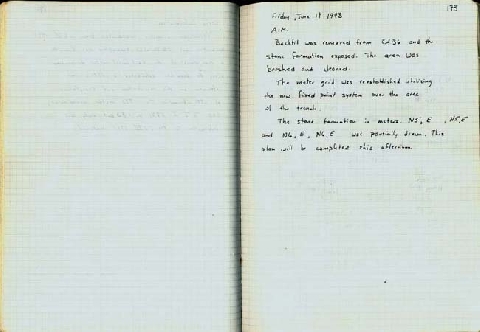 179
Friday, June 18 1998
A.M.
Backfill was removed from and the
stone formation exposed. The area was
brushed and cleaned.
The meter grid was reestablished utilizing
the new fixed point system over the area
of the trench.
The stone formation in meters N5, E
and N6, E , N6 E was partially drawn. This
plan will be completed this afternoon.